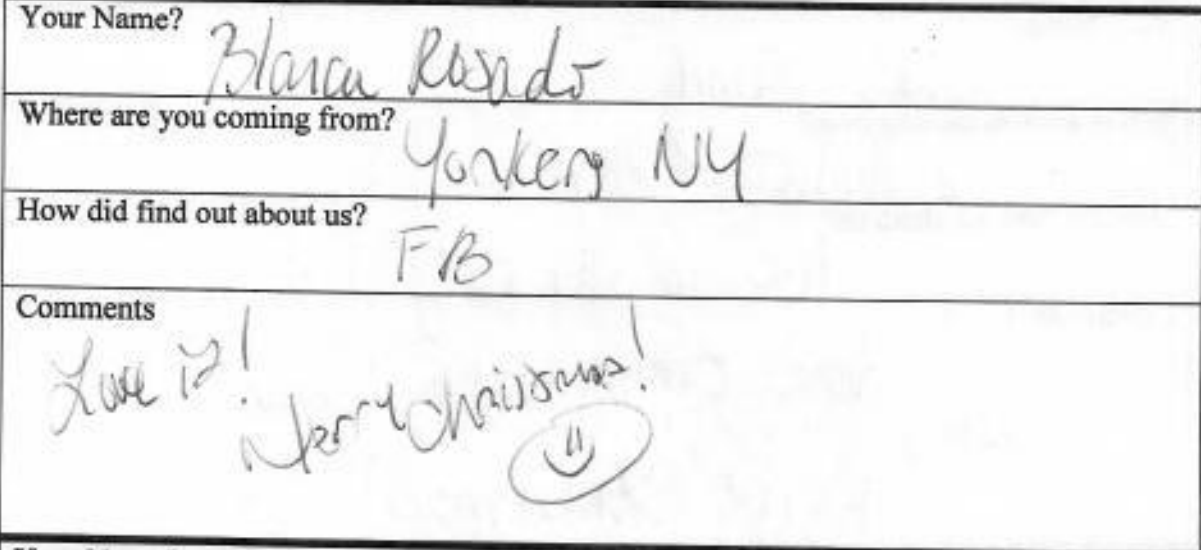 Your Name?
Blanca Rosado
Where are you coming from?
Yonkers NY
How did find out about us?
FB
Comments
Love it!
Merry Christmas!